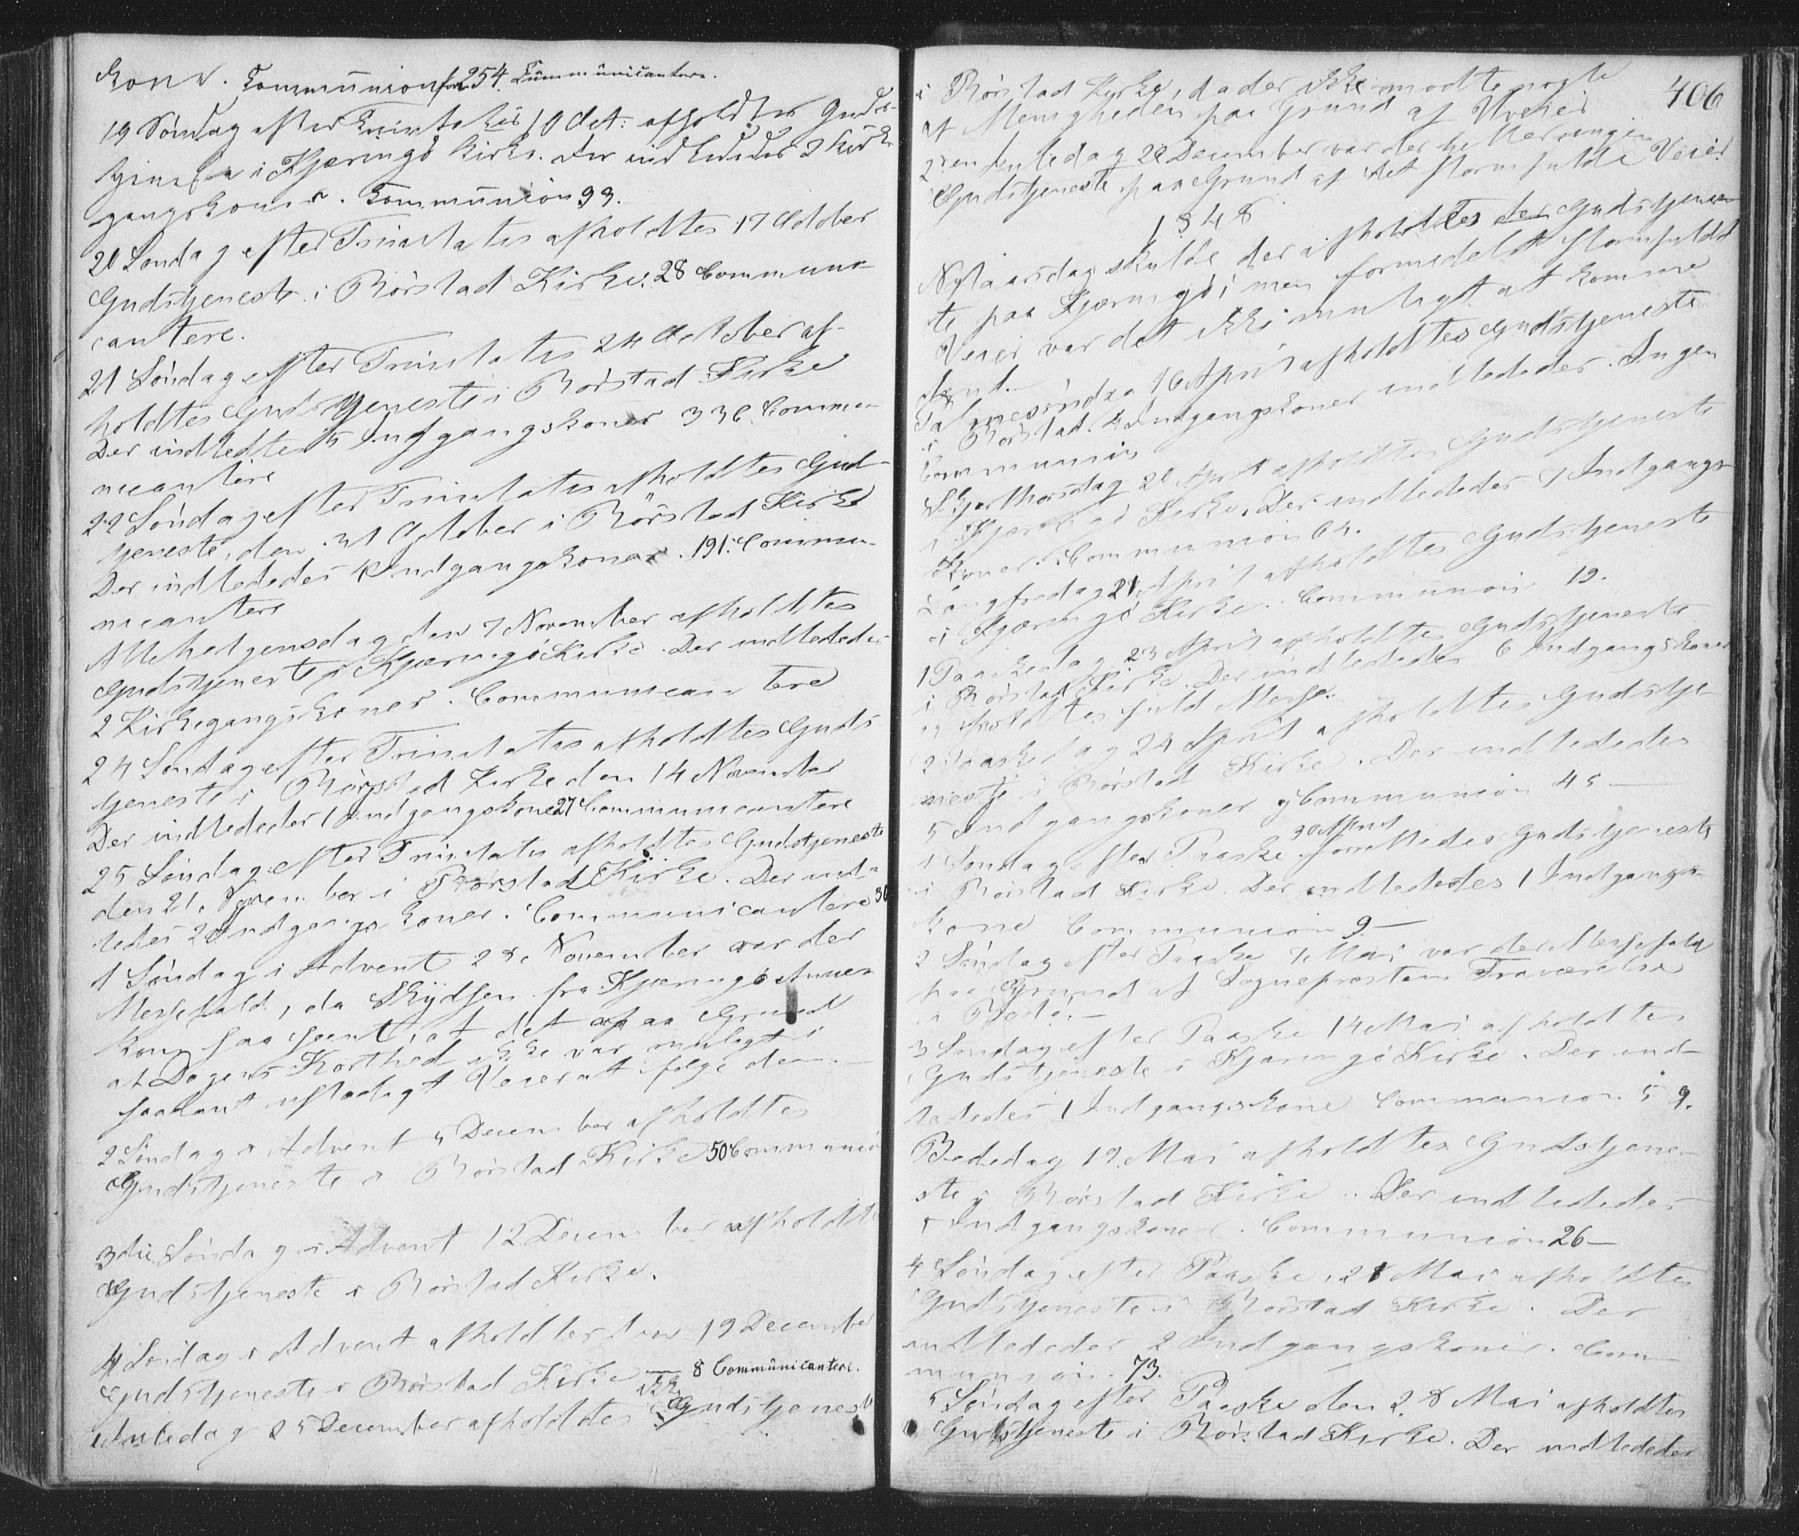 Kone. Communion for 254 Communicantere.
19 Søndag efter Trinitatis 10 Oct: afholdtes Guds-
tjeneste i Kjæringø Kirke. Der indlededes 2 Kirke-
gangskoner. Communion 99.
20 Søndag efter Trinitatis afholdtes 17 October
Gudstjeneste i Rørstad Kirke. 28 Communi-
cantere.
21 Søndag efter Trinitatis 24 October af-
holdtes Gudstjeneste i Rørstad Kirke
Der indledtes 5 Indgangskoner 336 Commu-
nicantere
22 Søndag efter Trinitatis afholdtes Gud-
tjeneste, den 31 October i Rørstad Kirke
Der indlededes Indgangskoner. 191 Commu-
nicantere
Allehelgensdag den 7 November afholdtes
Gudstjeneste i Kjæringø Kirke. Der indlededes
2 Kirkegangskoner. Communicantere
24 Søndag efter Trinitatis afholdtes Guds-
tjeneste i Rørstad Kirke den 14 November
Der indlededes 1 Indgangskone 27 Communicantere
25 Søndag efter Trinitatis afholdtes Gudstjeneste
den 21. November i Rørstad Kirke. Der ind-
ledes 2 Indgangskoner. Communicantere 36
1 Søndag i Advent 28. November var der
Messefald, da Skydsen fra Kjæringø
kom saa seent, at det paa Grund
af Dagens Korthed ikke var muligt i
saadant ustadigt Veier at følge den.
2 Søndag i Advent 5 December afholdtes
Gudstjeneste i Rørstad Kirke 50 Communion
3die Søndag i Advent 12 December afholdtes
Gudstjeneste i Rørstad Kirke.
4 Søndag i Advent afholdtes den 19 December
Gudstjeneste i Rørstad Kirke — 8 Communicantere.
Juledag 25 December afholdtes ikke Gudstjeneste
406
i Rørstad Kirke, da der ikke modte nogle
af Menigheden paa Grund af Uveier
2den Juledag 26 December var der heller ingen
Gudstjeneste paa Grund af det stormfulde Veier.
1848
Nytaarsdag skulde der afholdtes der Gudstjenes-
te paa Kjæringø; men formedelst stormfuldt
Veier var det ikke muligt at komme
derud.
Palmesøndag 16 April afholdtes Gudstjeneste
i Rørstad. 4 Indgangskoner indlededes. Ingen
Communion
Skjærthorsdag 20 April afholdtes Gudstjeneste
i Kjæringø Kirke. Der indlededes 7 Indgangs-
koner. Communion
Langfredag 21 April afholdtes Gudstjeneste
i Kjæringø Kirke. Communion 19.
1 Paaskedag 23 April afholdtes Gudstjeneste
i Rørstad Kirke. Der indlededes 6 Indgangskoner
og holdtes fuld Messe.
2 Paaskedag 24 April afholdtes Gudstje-
neste i Rørstad Kirke. Der indlededes
5 Indgangskoner Communion 45 —
1 Søndag efter Paaske 30 April forrettedes Gudstjeneste
i Rørstad Kirke. Der indlededes 1 Indgangs-
kone Communion 9 —
2 Søndag efter Paaske 7 Mai var der Messefald
paa Grund af Sogneprestens Fraværelse
i Bodø. —
3 Søndag efter Paaske 14 Mai afholdtes
Gudstjeneste i Kjæringø Kirke. Der ind-
lededes 1 Indgangskone Communion 59.
Bededag 19. Mai afholdtes Gudstjene-
ste i Rørstad Kirke. Der indlededes
Indgangskoner. Communion 26 —
4 Søndag efter Paaske, 21 Mai afholdtes
Gudstjeneste i Rørstad Kirke. Der
indlededes 2 Indgangskoner. Com-
munion 73.
5 Søndag efter Paaske den 28 Mai afholdtes
Gudstjeneste i Rørstad Kirke. Der indlededes